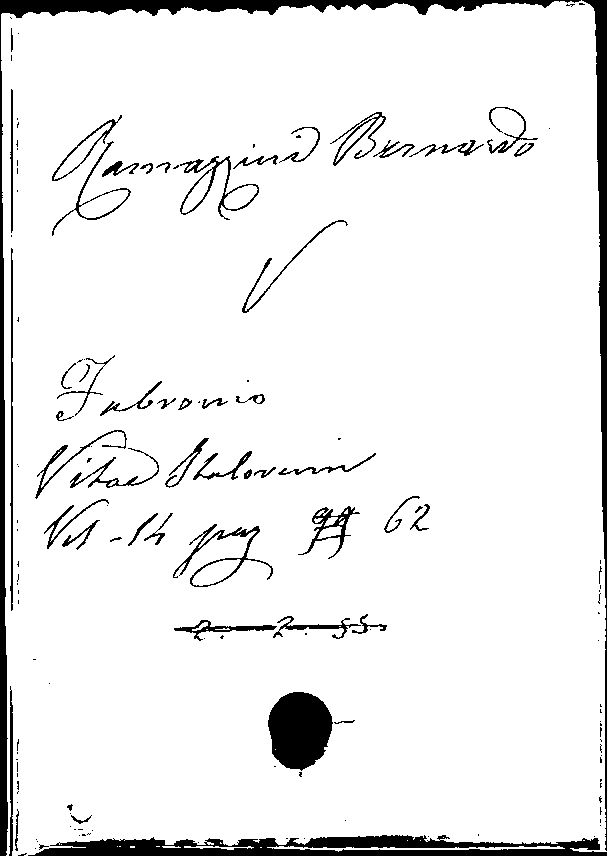 Ramazzini Bernardo
V
Fabronio
Vitae Italorum
Vol - 14 pag 99 62
2. 2. 55